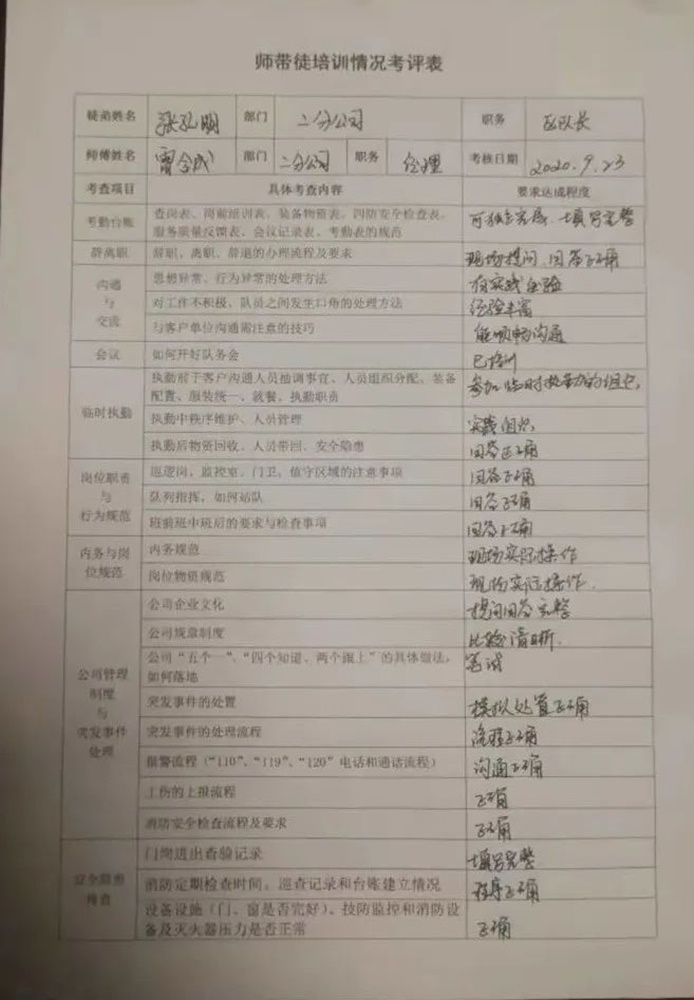 师带徒培训情况考评表
徒弟姓名 张孔明 部门 二分公司 职务 区队长
师傅姓名 部门 二分公司 职务 经理 考核日期 2020.9.23
考查项目 具体考查内容 要求达成程度
考勤台账 查岗表、岗前培训表、装备物资表、四防安全检查表、 可独立完成、填写完整
服务质量反馈表、会议记录表、考勤表的规范
辞离职 辞职、离职、辞退的办理流程及要求 现场提问、回答正确
沟通
与
交流
思想异常、行为异常的处理方法 有实践经验
对工作不积极、队员之间发生口角的处理方法 经验丰富
与客户单位沟通需注意的技巧 能顺畅沟通
会议 如何开好队务会 已培训
临时执勤
执勤前于客户沟通人员抽调事宜、人员组织分配、装备 参加临时执勤的组织
配置、服装统一、就餐、执勤职责
执勤中秩序维护、人员管理 实践组织
执勤后物资回收、人员带回、安全隐患 回答正确
岗位职责
与
行为规范
巡逻岗、监控室、门卫、值守区域的注意事项 回答正确
队列指挥、如何站队 回答正确
班前班中班后的要求与检查事项 回答正确
内务与岗
位规范
内务规范 现场实际操作
岗位物资规范 现场实际操作.
公司管理
制度
与
突发事件
处理
公司企业文化 提问回答完整
公司规章制度 比较清晰.
公司“五个一”、“四个知道、两个跟上”的具体做法, 笔试
如何落地
突发事件的处置 模拟处置正确
突发事件的处理流程 流程正确
报警流程(“110”、“119”、“120”电话和通话流程) 沟通正确
工伤的上报流程 正确
消防安全检查流程及要求 正确
安全隐患
检查
门岗进出查验记录 填写完整
消防定期检查时间、巡查记录和台账建立情况 程序正确
设备设施(门、窗是否完好)、技防监控和消防设 正确
备及灭火器压力是否正常